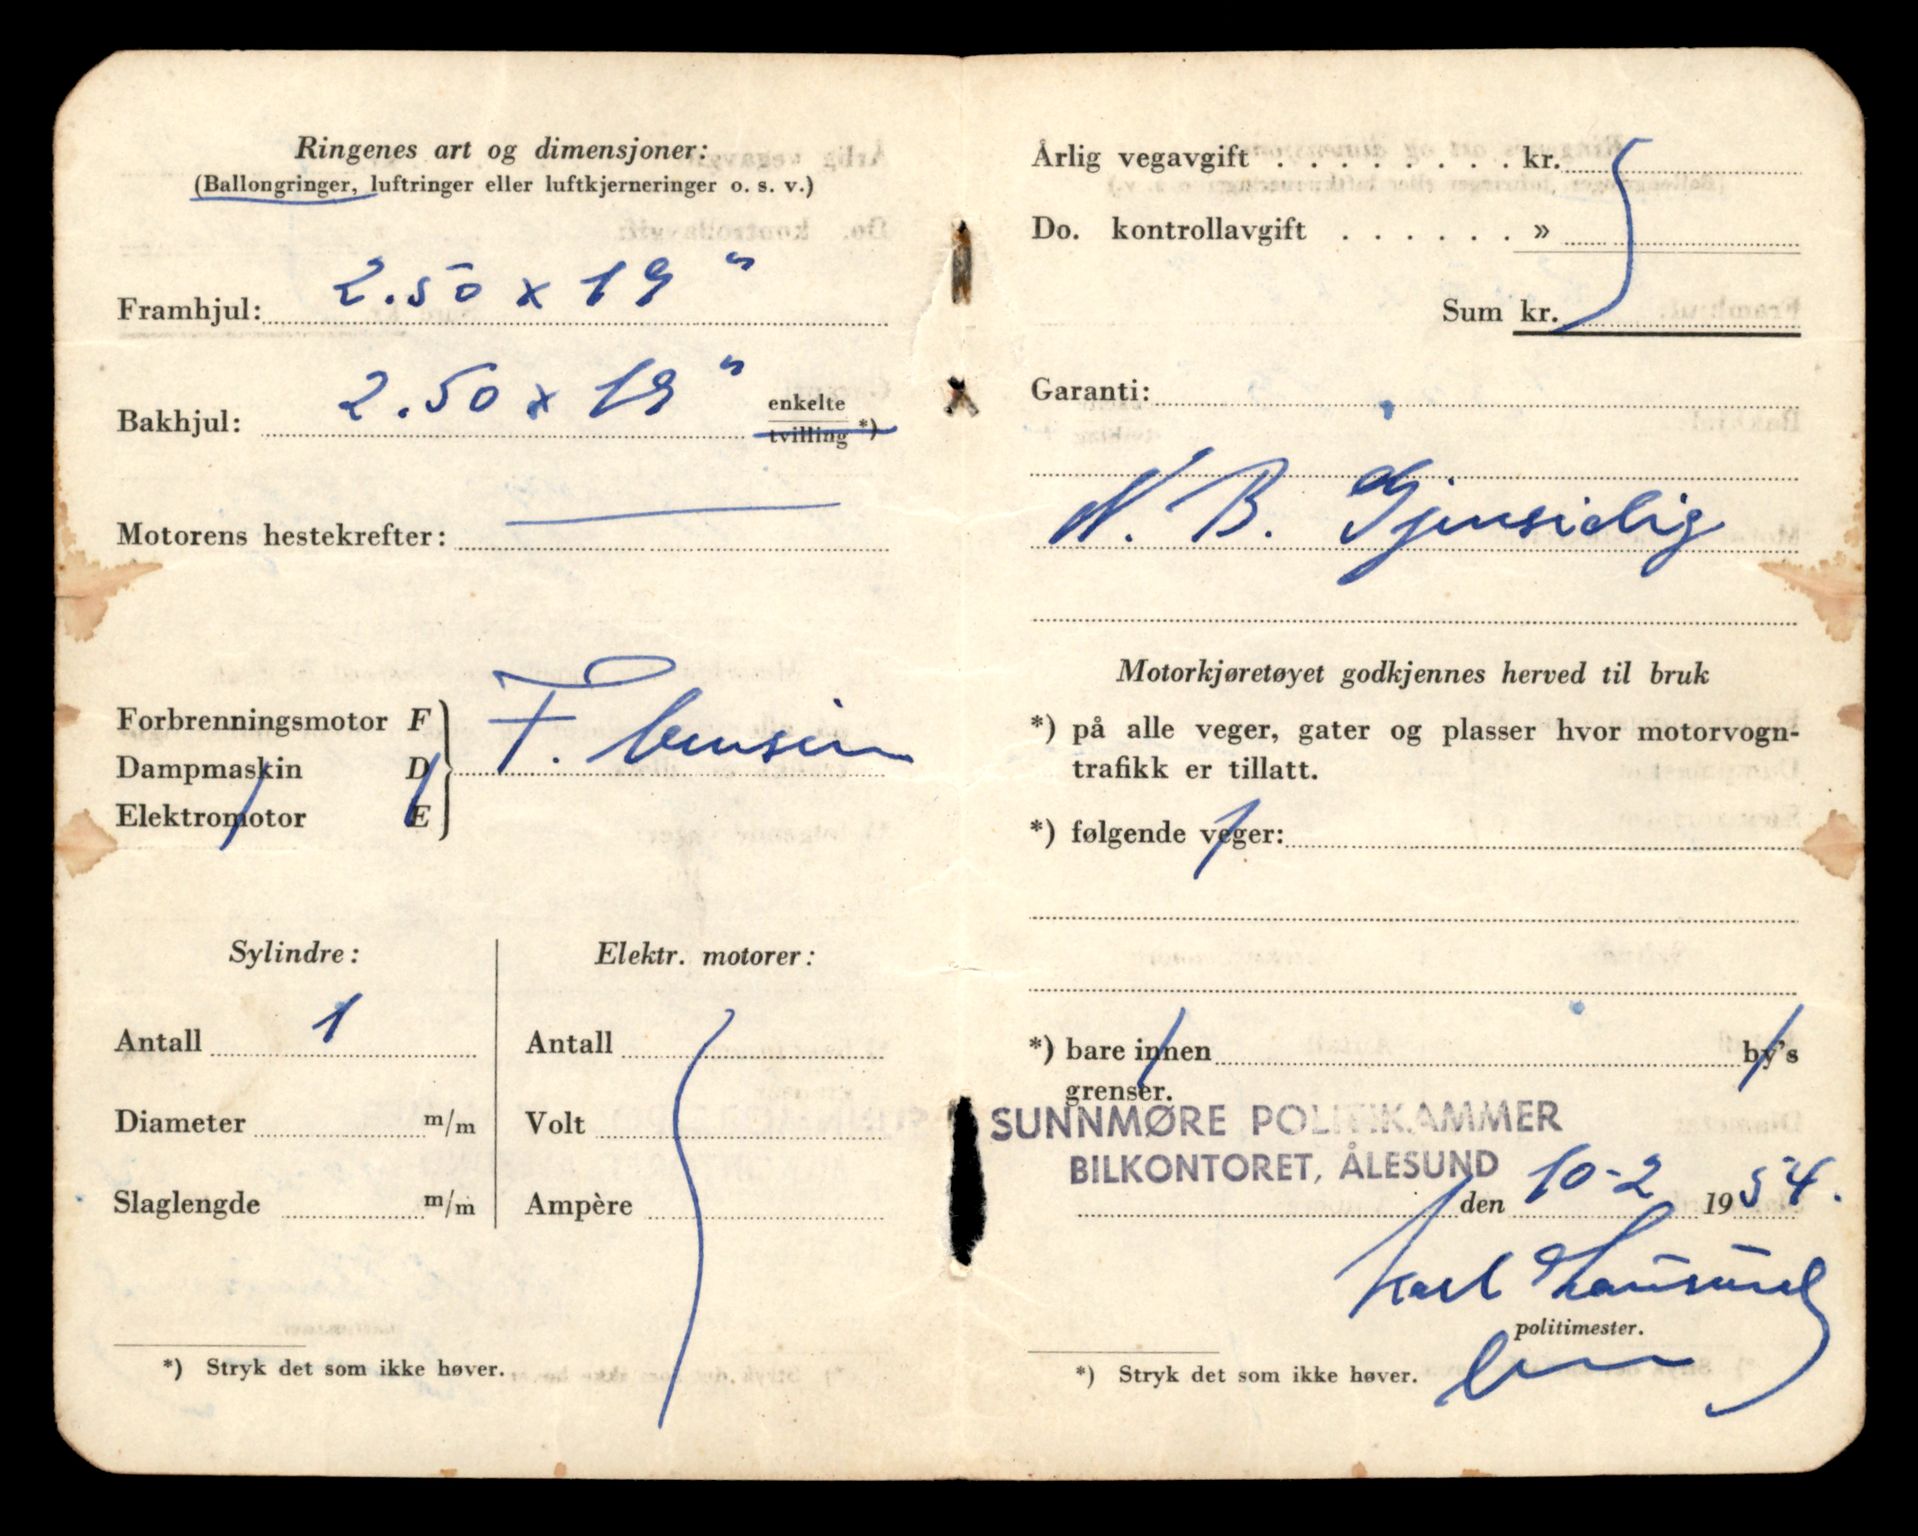 Ringenes art og dimensjoner:
(Ballongringer, luftringer eller luftkjerneringer o. s. v.)
Framhjul: 2.50 x 19 "
Bakhjul: 2.50 x 19 " enkelte
tvilling *)
Motorens hestekrefter:
Forbrenningsmotor F
Dampmaskin D
Elektromotor E
F. bensin
Sylindre:
Antall 1
Diameter m/m
Slaglengde m/m
Elektr. motorer:
Antall
Volt
Ampère
*) Stryk det som ikke høver.
Årlig vegavgift . . . . . . . . kr.
Do. kontrollavgift . . . . . . »
Sum kr.
Garanti:
N. B. Gjensidig
Motorkjøretøyet godkjennes herved til bruk
*) på alle veger, gater og plasser hvor motorvogn-
trafikk er tillatt.
*) følgende veger:
*) bare innen by's
grenser.
SUNNMØRE POLITIKAMMER
BILKONTORET, ÅLESUND
den 10-2 1954.
Karl
politimester.
*) Stryk det som ikke høver.